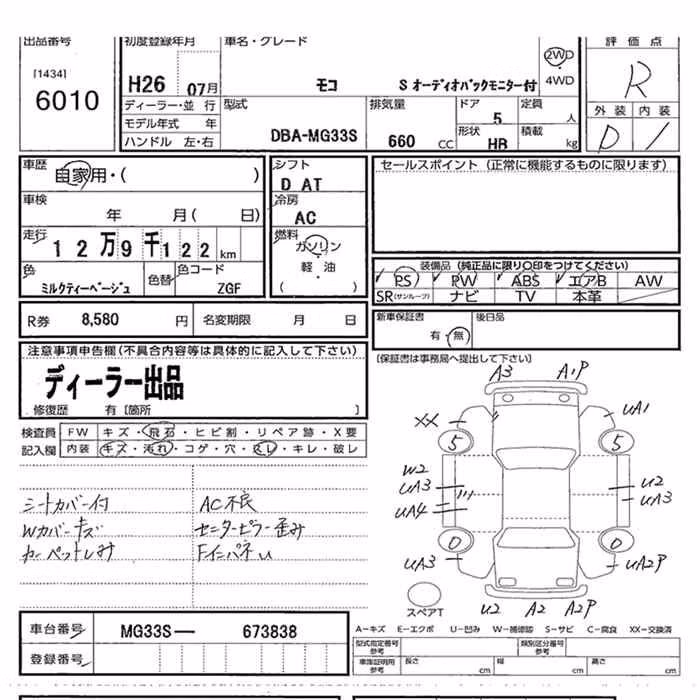 出品番号
[1434]
6010
初度登録年月
H26 07月
ディーラー・並 行
モデル年式 年
ハンドル 左・右
車名・グレード
モコ S オーディオバックモニター付
2WD
4WD
型式
DBA-MG33S
排気量
660 CC
ドア
5
形状
HB
定員
人
積載
kg
評 価 点
R
外 装 内 装
D 1
車歴
自家用・( )
車検
年 月( 日)
走行
1 2 万 9 千 1 2 2 km
色
ミルクティーベージュ
色替
色コード
ZGF
シフト
D AT
冷房
AC
燃料
ガソリン
・
軽 油
( )
セールスポイント (正常に機能するものに限ります)
装備品 (純正品に限り○印をつけてください)
PS PW ABS エアB AW
SR(サンルーフ) ナビ TV 本革
R券 8,580 円 名変期限 月 日
新車保証書
有・無
後日品
[保証書は事務局へ提出して下さい]
注意事項申告欄(不具合内容等は具体的に記入して下さい)
ディーラー出品
修復歴 有 [箇所 ]
検査員 FW キズ・飛石・ヒビ割・リペア跡・X要
記入欄 内装 キズ・汚れ・コゲ・穴・スレ・キレ・破レ
シートカバー付 AC不良
Wカバーキズ センターピラー歪み
カーペットしみ Fインパネ凵
A3 A1P
XX UA1
5 5
W2
UA3 U2
UA4 UA3
0 0
UA3 UA2P
スペアT U2 A2 A2P
A−キズ E−エクボ U−凹み W−補修跡 S−サビ C−腐食 XX−交換済
車台番号 MG33S— 673838
登録番号
型式指定番号
参考
類別区分番号
参考
車庫証明用
参考
長さ cm 幅 cm 高さ cm